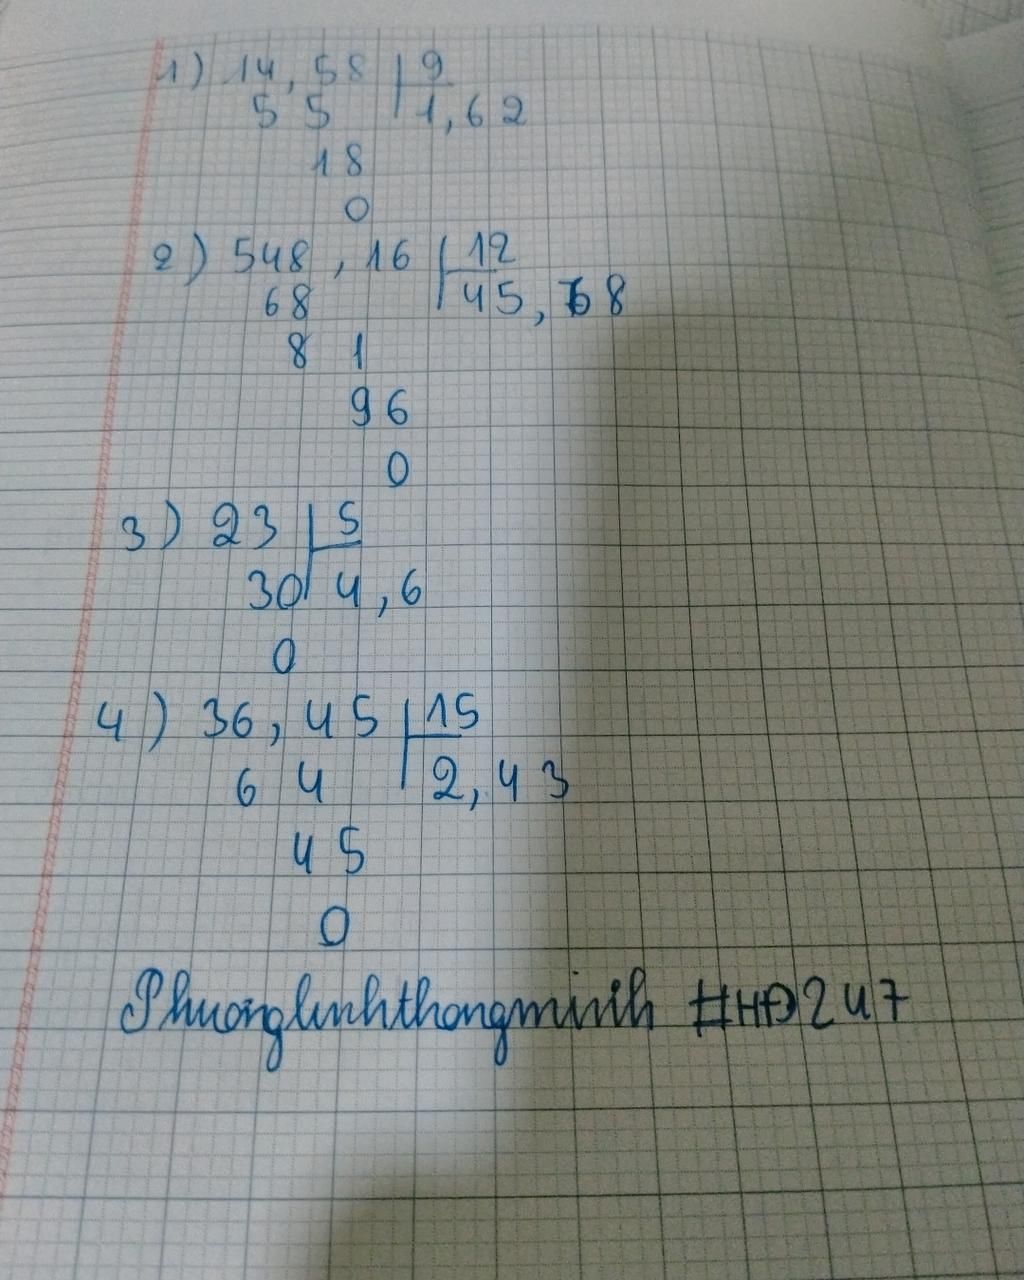 1) 14,58 | 9
55 | 1,62
18
0
2) 548,16 | 12
68 | 45,68
81
96
0
3) 23 | 5
30 | 4,6
0
4) 36,45 | 15
64 | 2,43
45
0
Phuonglinhthongminh #HĐ247